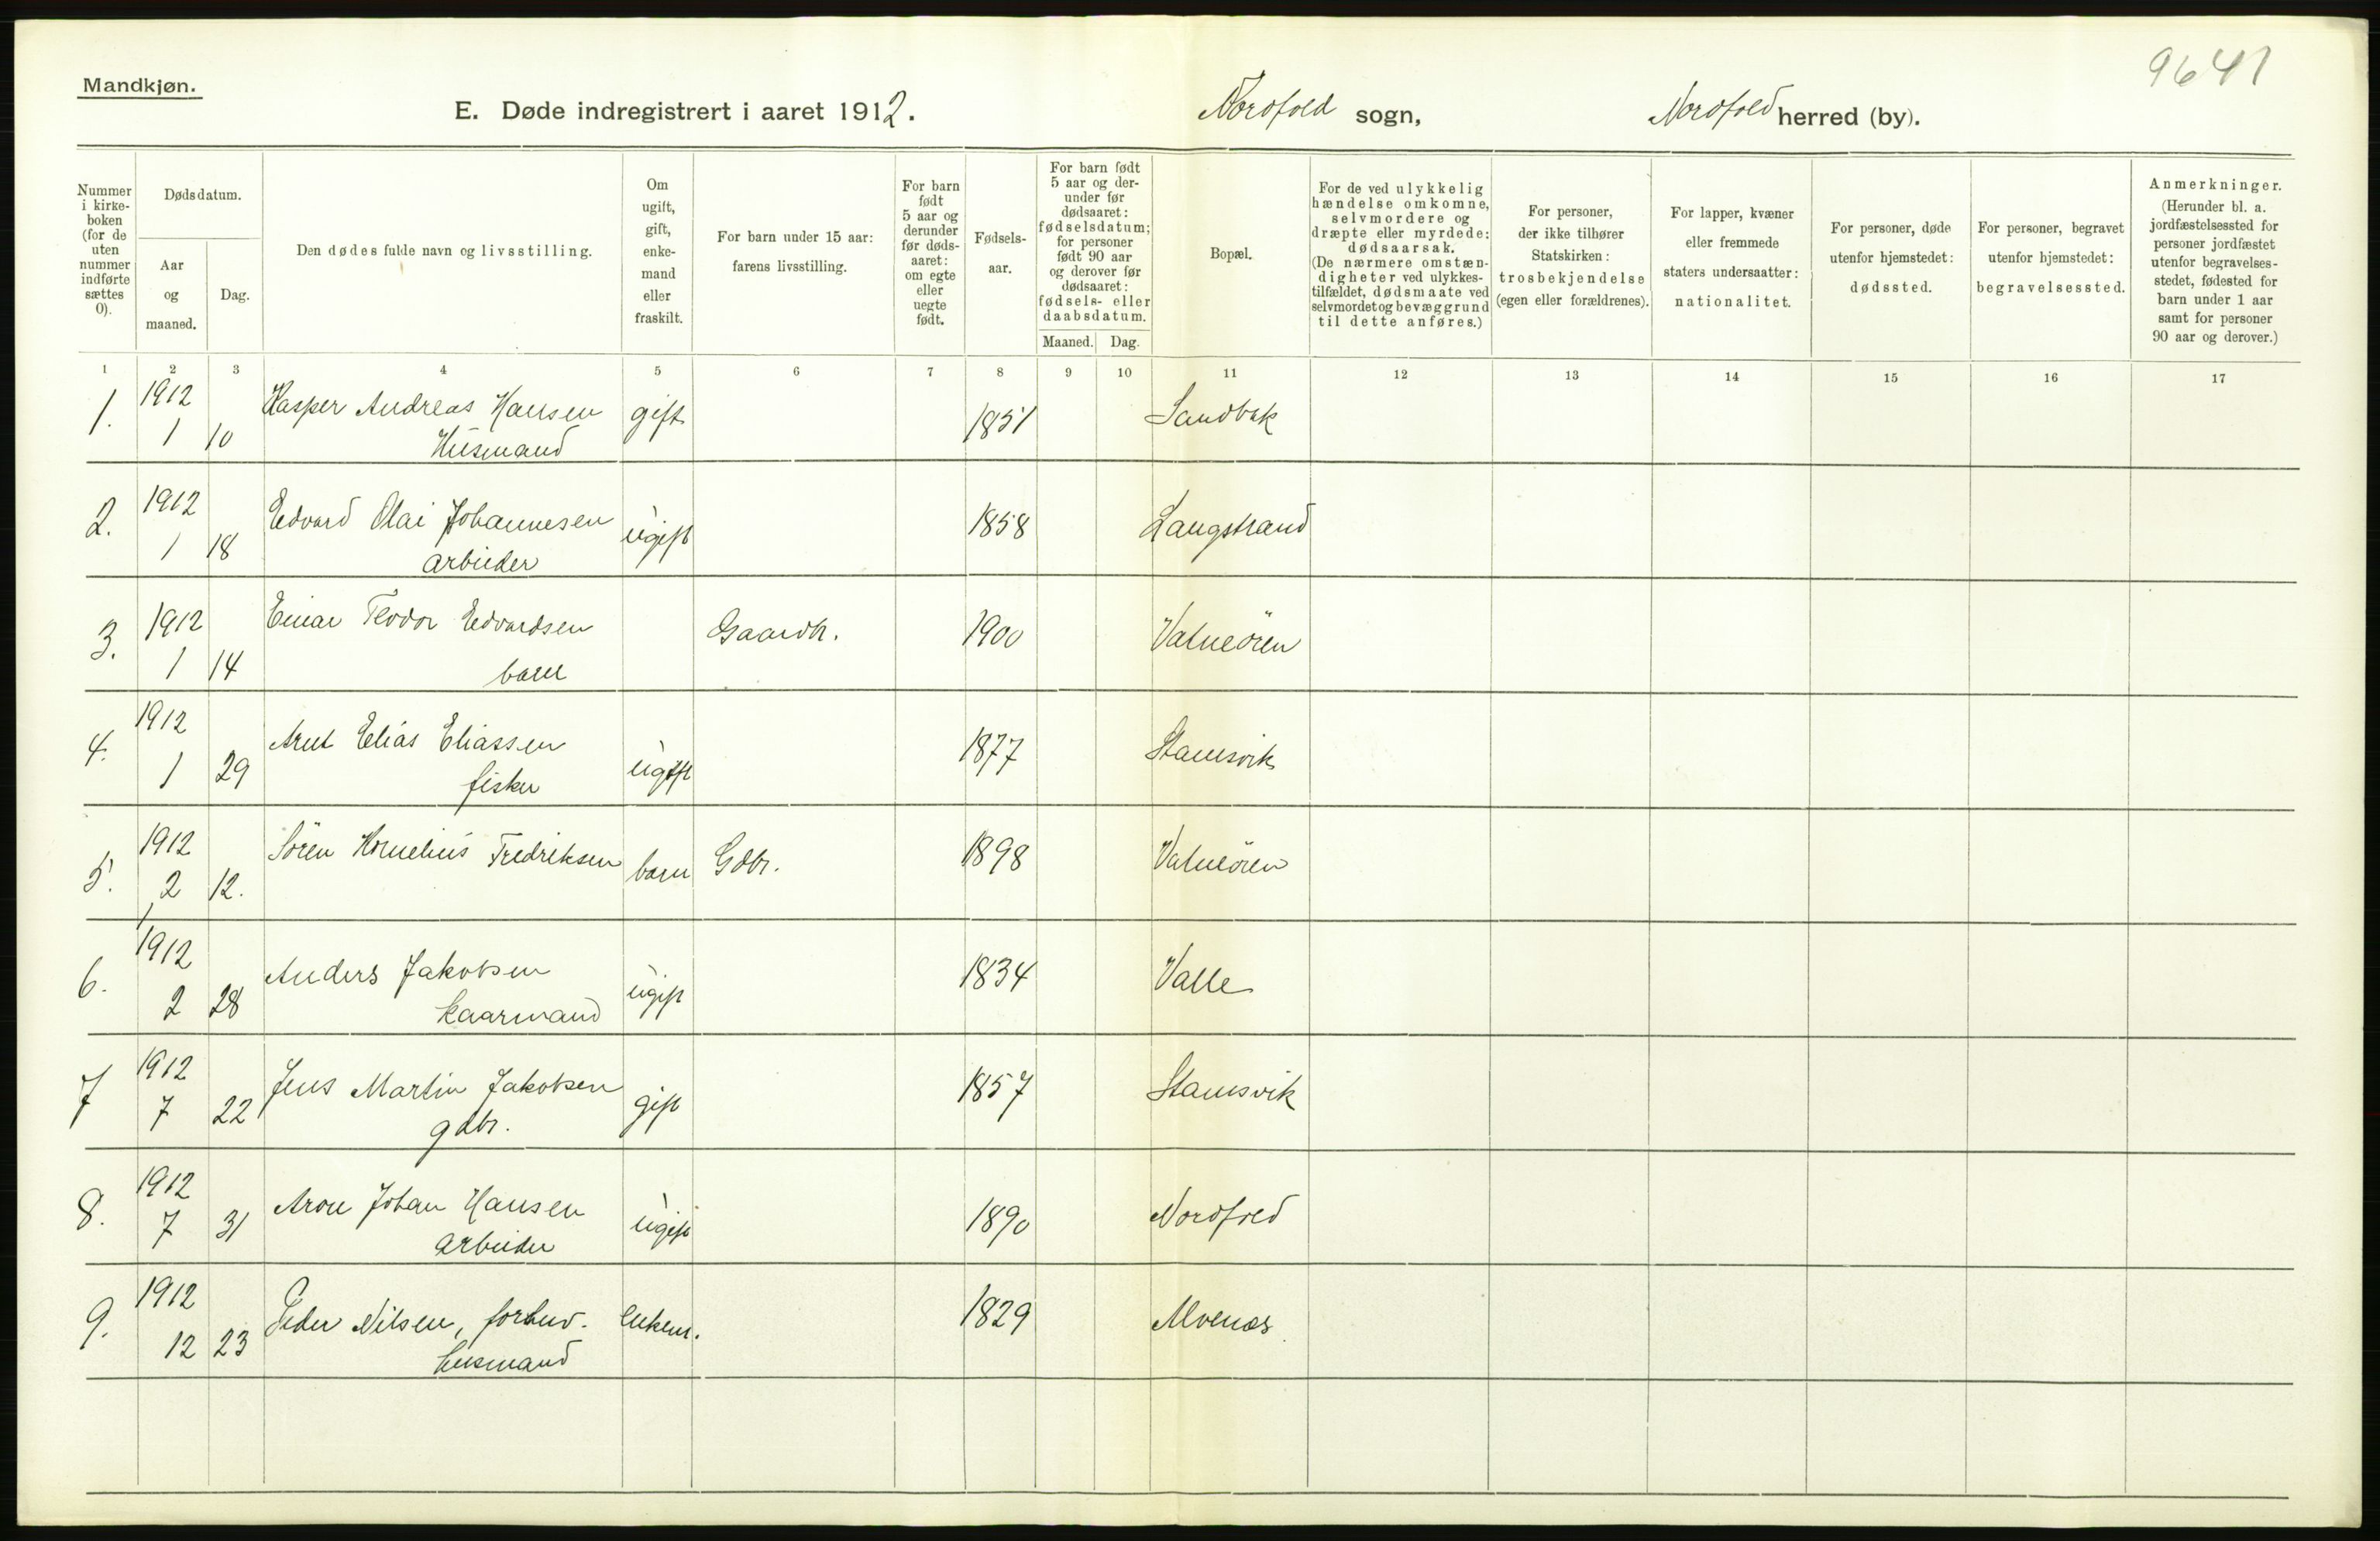 9641
Mandkjøn.
E. Døde indregistrert i aaret 1912. Nordfold sogn, Nordfold herred (by).
Nummer i kirke- boken (for de uten nummer indførte sættes 0).
Dødsdatum.
Aar og maaned.
Dag.
Den dødes fulde navn og livsstilling.
Om ugift, gift, enke- mand eller fraskilt.
For barn under 15 aar: farens livsstilling.
For barn født 5 aar og derunder før døds- aaret: om egte eller uegte født.
Fødsels- aar.
For barn født 5 aar og der- under før dødsaaret: fødselsdatum; for personer født 90 aar og derover før dødsaaret: fødsels- eller daabsdatum.
Maaned. Dag.
Bopæl.
For de ved ulykkelig hændelse omkomne, selvmordere og dræpte eller myrdede: dødsaarsak. (De nærmere omstæn- digheter ved ulykkes- tilfældet, dødsmaate ved selvmordet og bevæggrund til dette anføres.)
For personer, der ikke tilhører Statskirken: trosbekjendelse (egen eller forældrenes).
For lapper, kvæner eller fremmede staters undersaatter: nationalitet.
For personer, døde utenfor hjemstedet: dødssted.
For personer, begravet utenfor hjemstedet: begravelsessted.
Anmerkninger. (Herunder bl. a. jordfæstelsessted for personer jordfæstet utenfor begravelses- stedet, fødested for barn under 1 aar samt for personer 90 aar og derover.)
1 2 3 4 5 6 7 8 9 10 11 12 13 14 15 16 17
1. 1912 1 10 Kasper Andreas Hansen gift 1851 Sandbak
Husmand
2. 1912 1 18 Edvard Olai Johannesen ugift 1858 Langstrand
arbeider
3. 1912 1 14 Einar Teodor Edvardsen Gaardb. 1900 Valneören
barn
4. 1912 1 29 Arnt Elias Eliassen ugift 1877 Stamsvik
fisker
5. 1912 2 12. Sören Kornelius Fredriksen barn Gdbr. 1898 Valneören
6. 1912 2 28 Anders Jakobsen ugift 1834 Valle
kaarmand
7 1912 7 22 Jens Martin Jakobsen gift 1857 Stamsvik
gdbr.
8. 1912 7 31 Aron Johan Hansen ugift 1890 Nordfold
arbeider
9. 1912 12 23 Peder Nilsen, forhenv. enkem. 1829 Alvenes
husmand